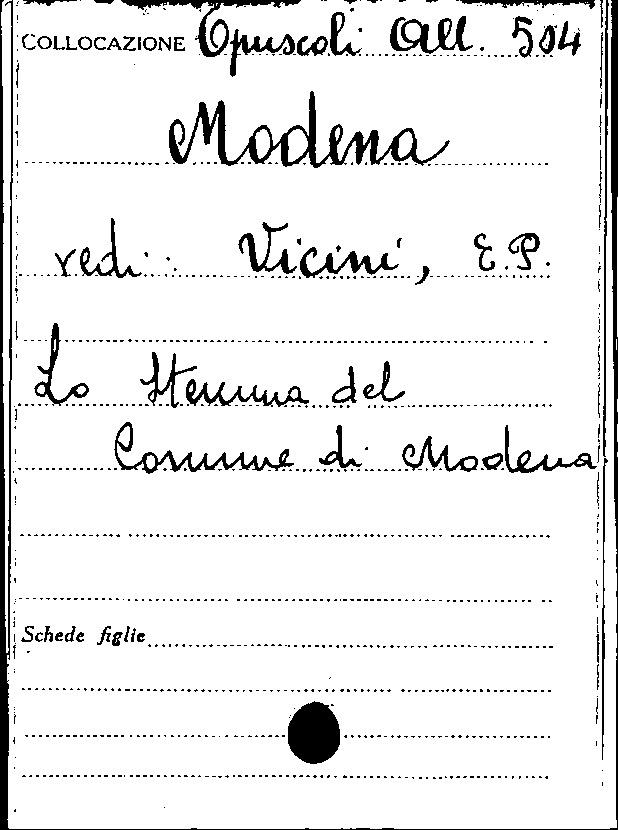 COLLOCAZIONE Opuscoli All. 504
Modena
vedi: Vicini, E.P.
Lo Stemma del
Comune di Modena
Schede figlie